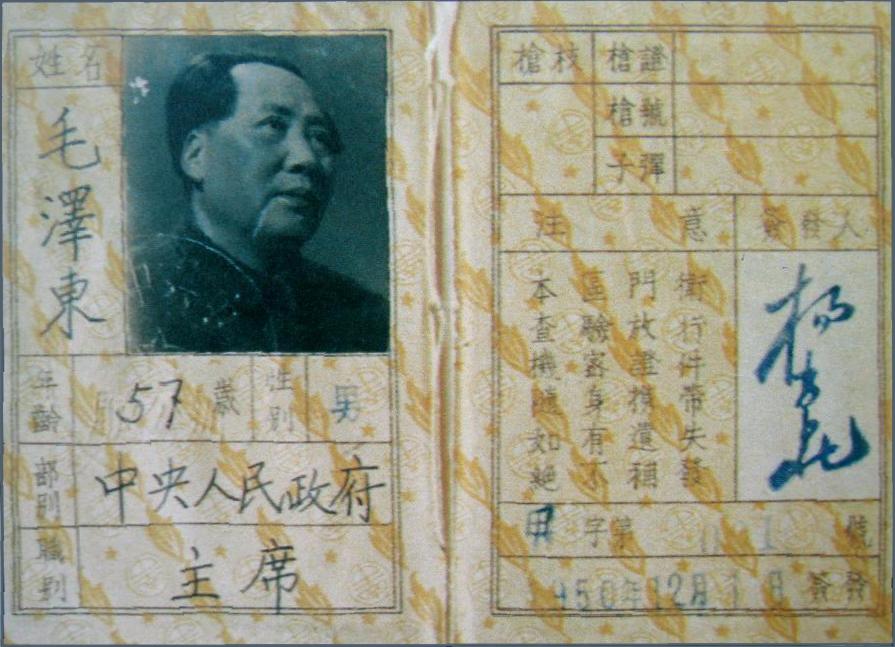 姓名
毛澤東
年齡 57 歲 性別 男
部別 中央人民政府
職別 主席
槍枝 槍證
槍號
子彈
注意 簽發人
本區門衛
查驗放行
機密證件
隨身攜帶
如有遺失
絕不補發
楊尚昆
甲字第 01 號
950年12月1日簽發